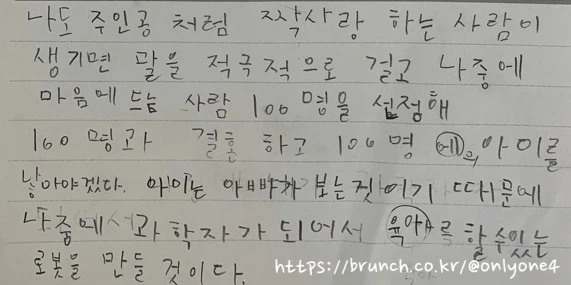 나도 주인공 처럼 짝사랑 하는 사람이
생기면 말을 적극적으로 걸고 나중에
마음에 드는 사람 100명을 선정해
100명과 결혼 하고 100명 에의 아이를
낳아야겠다. 아이는 아빠가 보는것 이기 때문에
나중에 과학자가 되어서 육아를 할수있는
로봇을 만들 것이다.
https://brunch.co.kr/@onlyone4